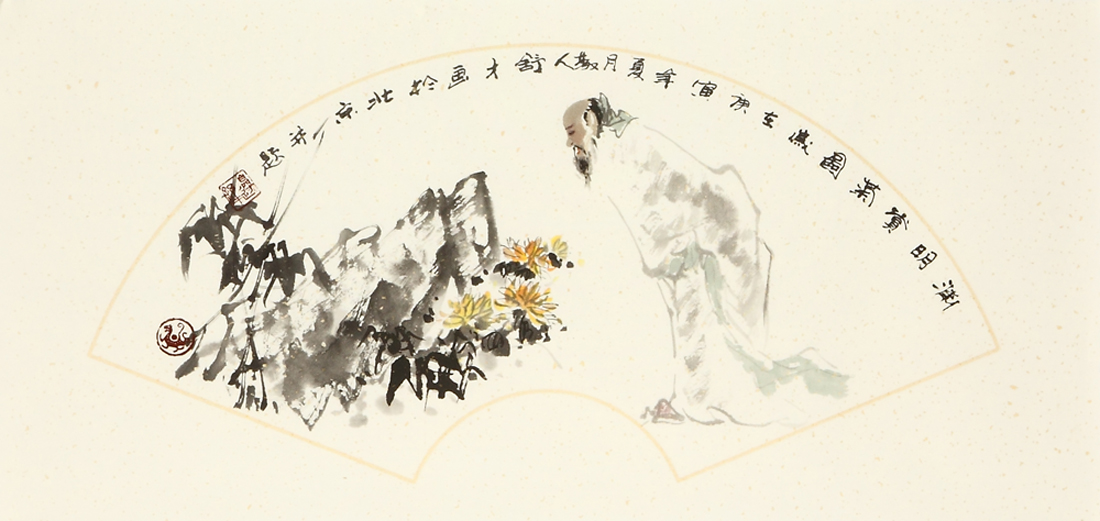 渊明賞菊圖歲在庚寅年夏月散人舒才画於北京并题